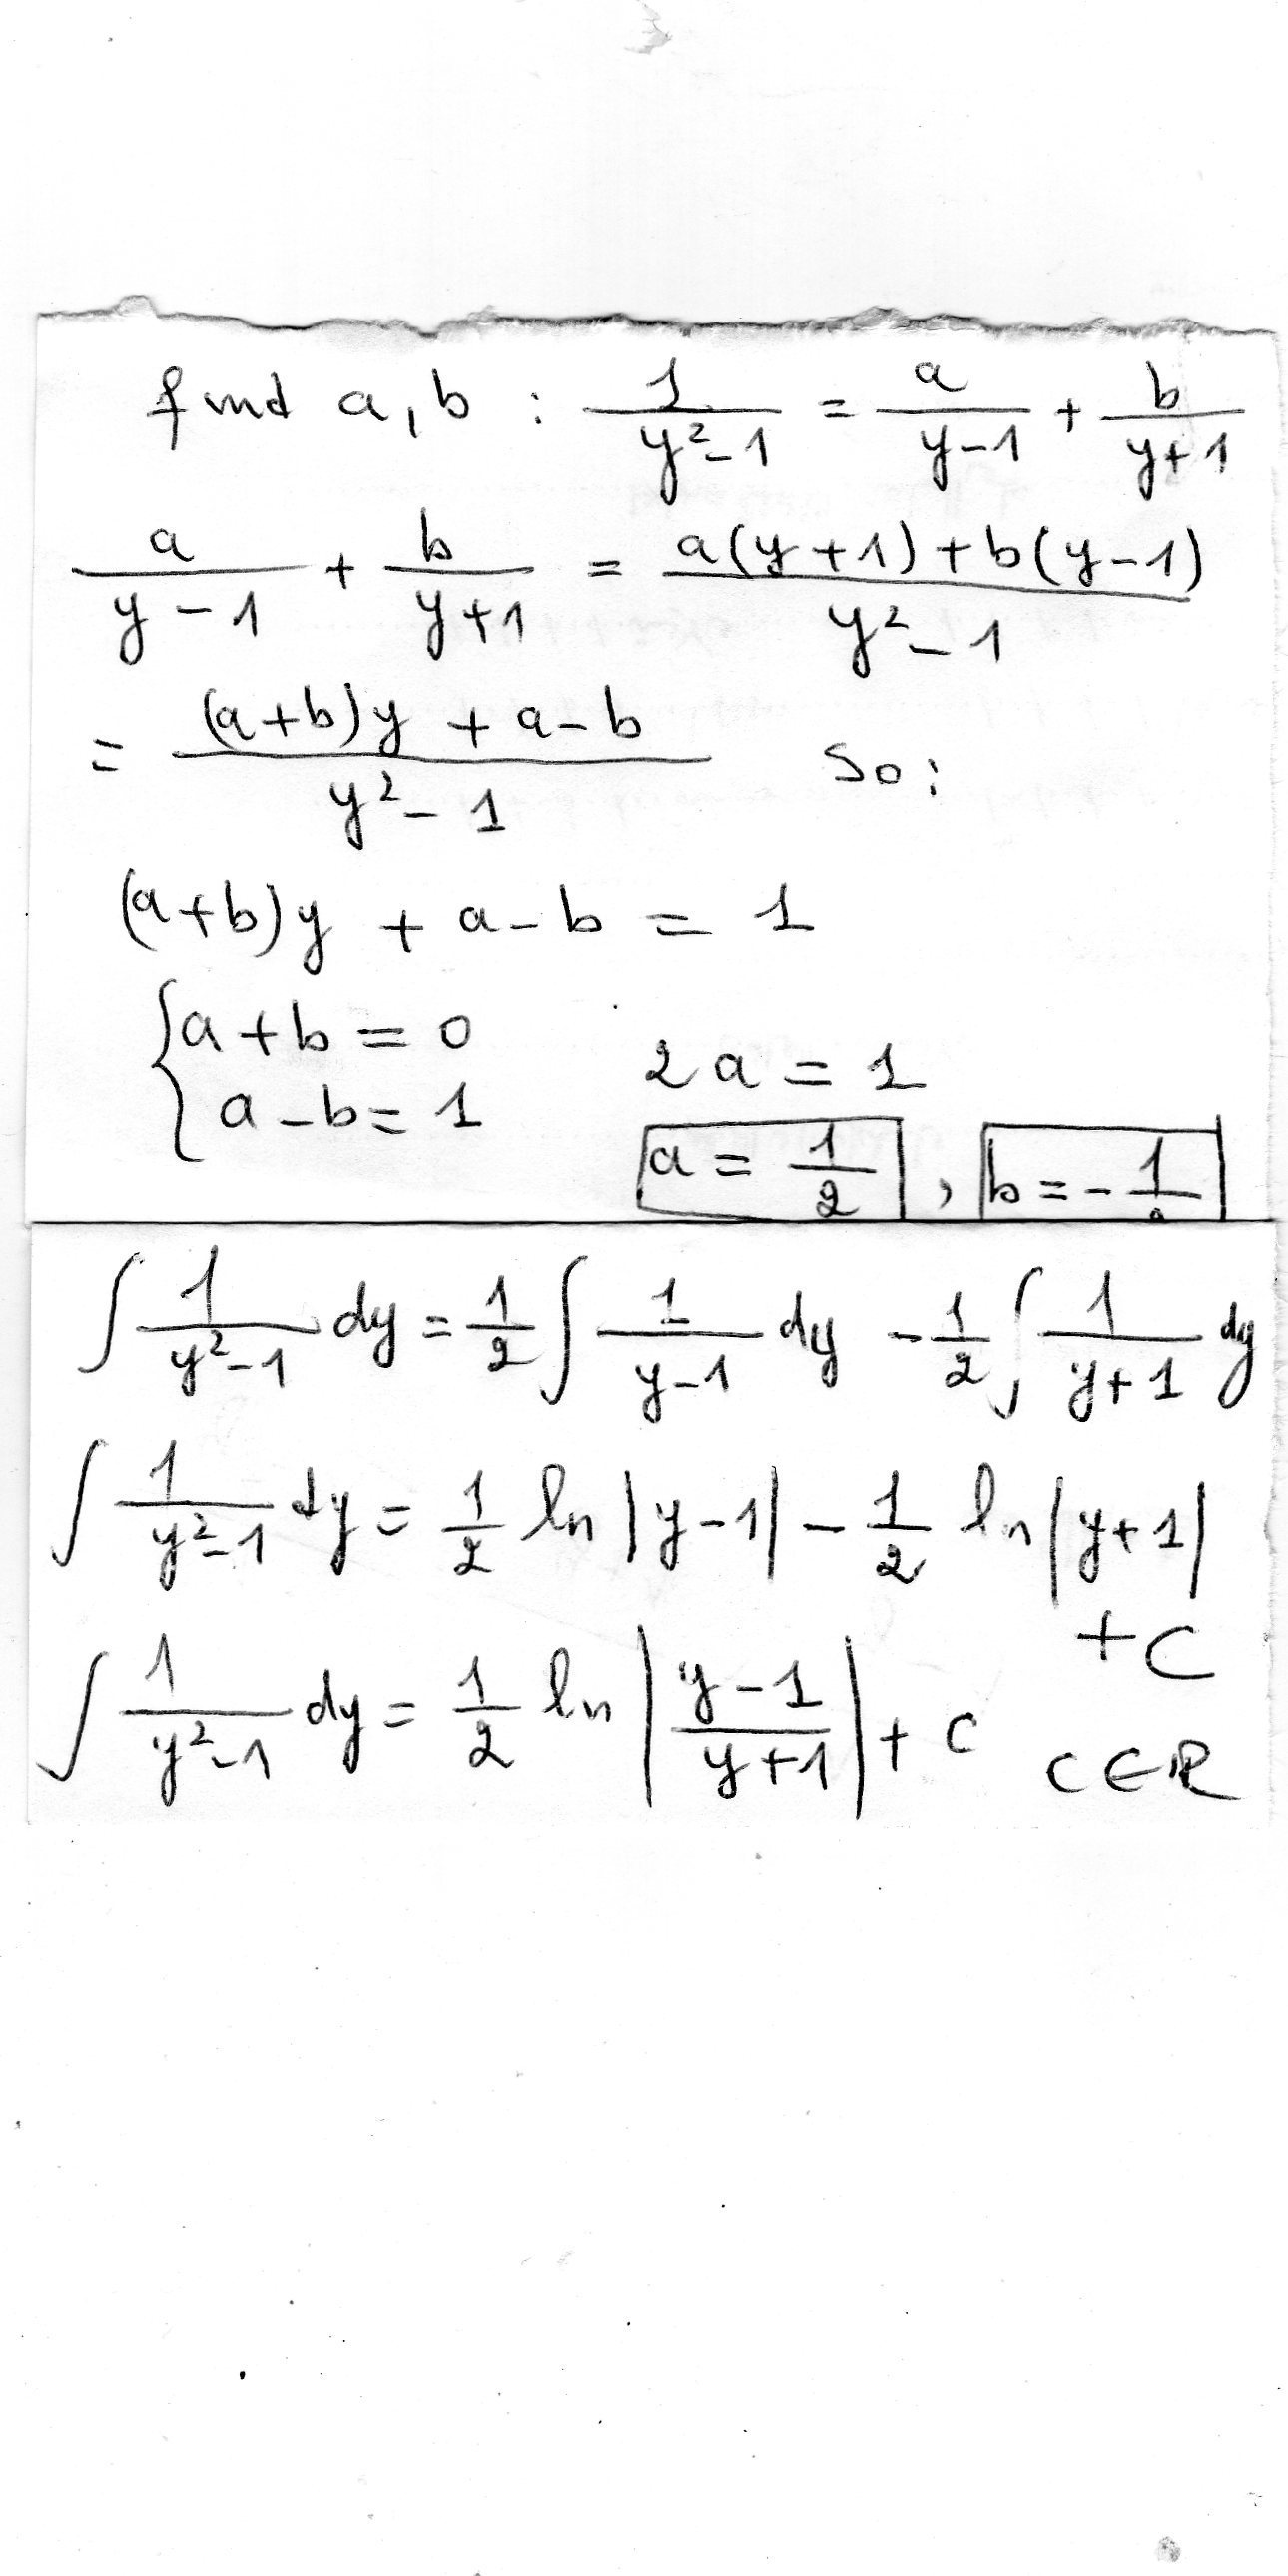 find a, b : 1/(y²-1) = a/(y-1) + b/(y+1)
a/(y-1) + b/(y+1) = (a(y+1)+b(y-1))/(y²-1)
= ((a+b)y + a-b)/(y²-1) so:
(a+b)y + a-b = 1
{a+b=0
a-b=1 2a=1
a = 1/2 , b = -1/
∫ 1/(y²-1) dy = 1/2 ∫ 1/(y-1) dy - 1/2 ∫ 1/(y+1) dy
∫ 1/(y²-1) dy = 1/2 ln |y-1| - 1/2 ln |y+1|
+C
∫ 1/(y²-1) dy = 1/2 ln |(y-1)/(y+1)| + c c∈R